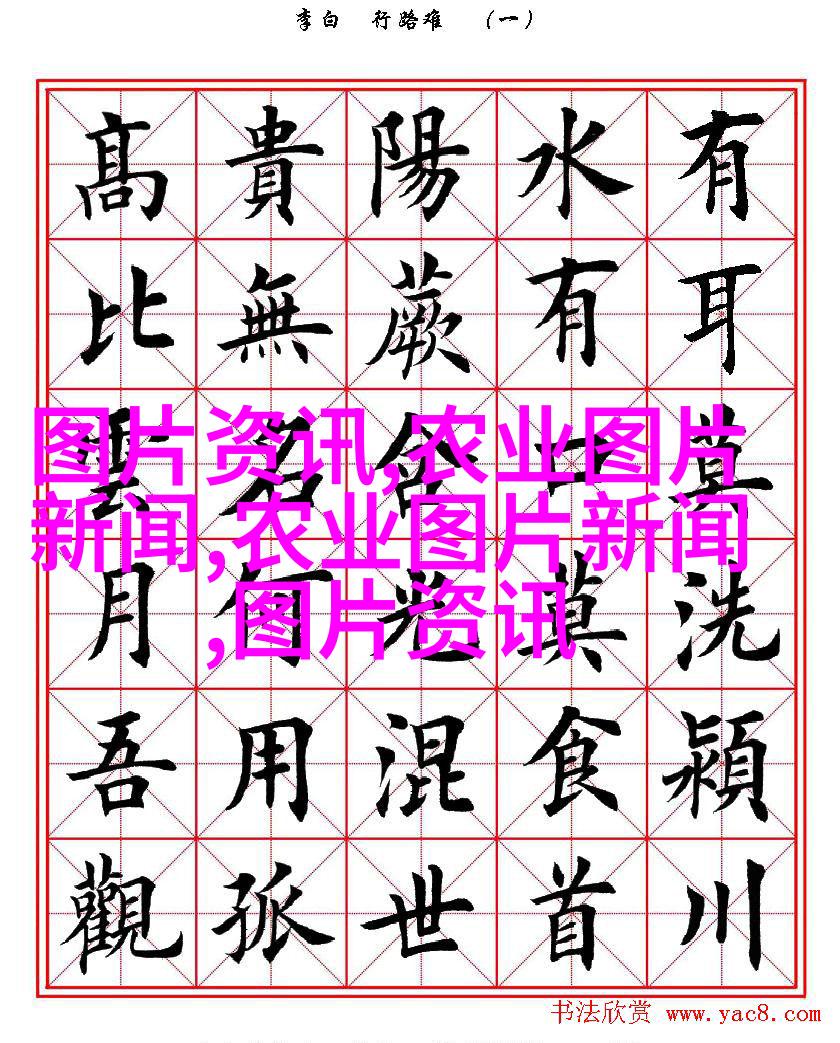 李白 行路难 （一）
有耳莫洗潁川
水有口莫食首
陽蕨含光混世
貴無名何用孤
髙比雲月吾觀
图片资讯,农业图片
新闻,农业图片新闻
,图片资讯
书法欣赏 www.yac8.com